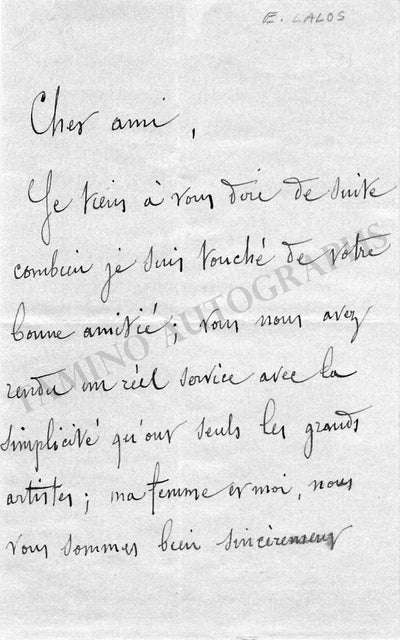 E. LALOS
Cher ami,
Je tiens à vous dire de suite
combien je suis touché de votre
bonne amitié; vous nous avez
rendu un réel service avec la
simplicité qu'ont seuls les grands
artistes; ma femme et moi, nous
vous sommes bien sincèrement
TAMINO AUTOGRAPHS